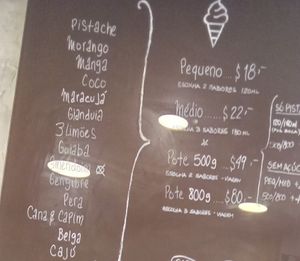 Pistache
Morango
Manga
Coco
Maracujá
Glandula
3 Limões
Goiaba
Gengibre
Pera
Cana & Capim
Belga
Cajú
Pequeno... $18,-
ESCOLHA 2 SABORES 120ML
Médio... $22,-
3 SABORES 180 ML
Pote 500g... $49,-
ESCOLHA 2 SABORES - VIAGEM
Pote 800g... $80,-
ESCOLHA 3 SABORES - VIAGEM
SÓ PIST
500/800
SEM AÇÚC
PEQ/MED
500/800